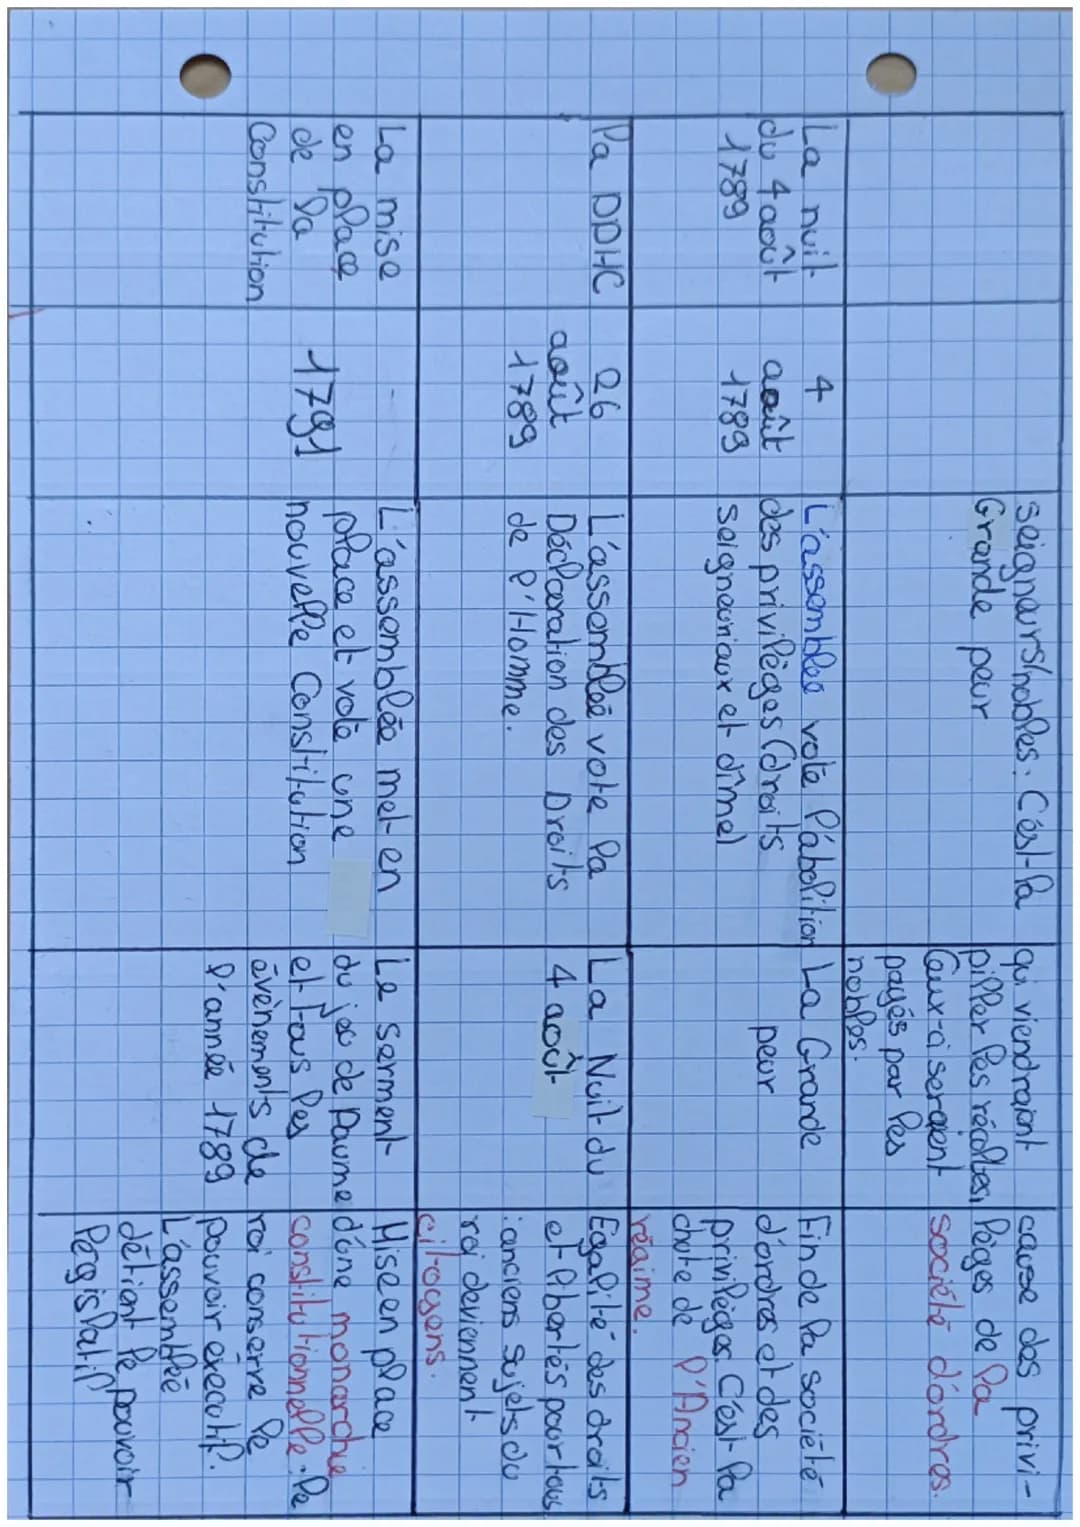 seigneurs/nobles : C'est la
Grande peur
qui viendraient
piller les récoltes,
Ceux-ci seraient
payés par les
nobles.
cause des privi-
lèges de la
société d'ordres.
La nuit
du 4 août
1789
4
août
1789
L'assemblée vote l'abolition
des privilèges (droits
seigneuriaux et dîme)
La Grande
peur
Fin de la société
d'ordres et des
privilèges. C'est la
chute de l'Ancien
régime.
la DDHC
26
août
1789
L'assemblée vote la
Déclaration des Droits
de l'Homme.
La Nuit du
4 août
Egalité des droits
et libertés pour tous
: anciens sujets du
roi deviennent
citoyens.
La mise
en place
de la
Constitution
1791
L'assemblée met en
place et vote une
nouvelle Constitution
Le serment
du jeu de Paume
et tous les
évènements de
l'année 1789
Mise en place
d'une monarchie
constitutionnelle : le
roi conserve le
pouvoir éxecutif.
L'assemblée
détient le pouvoir
législatif